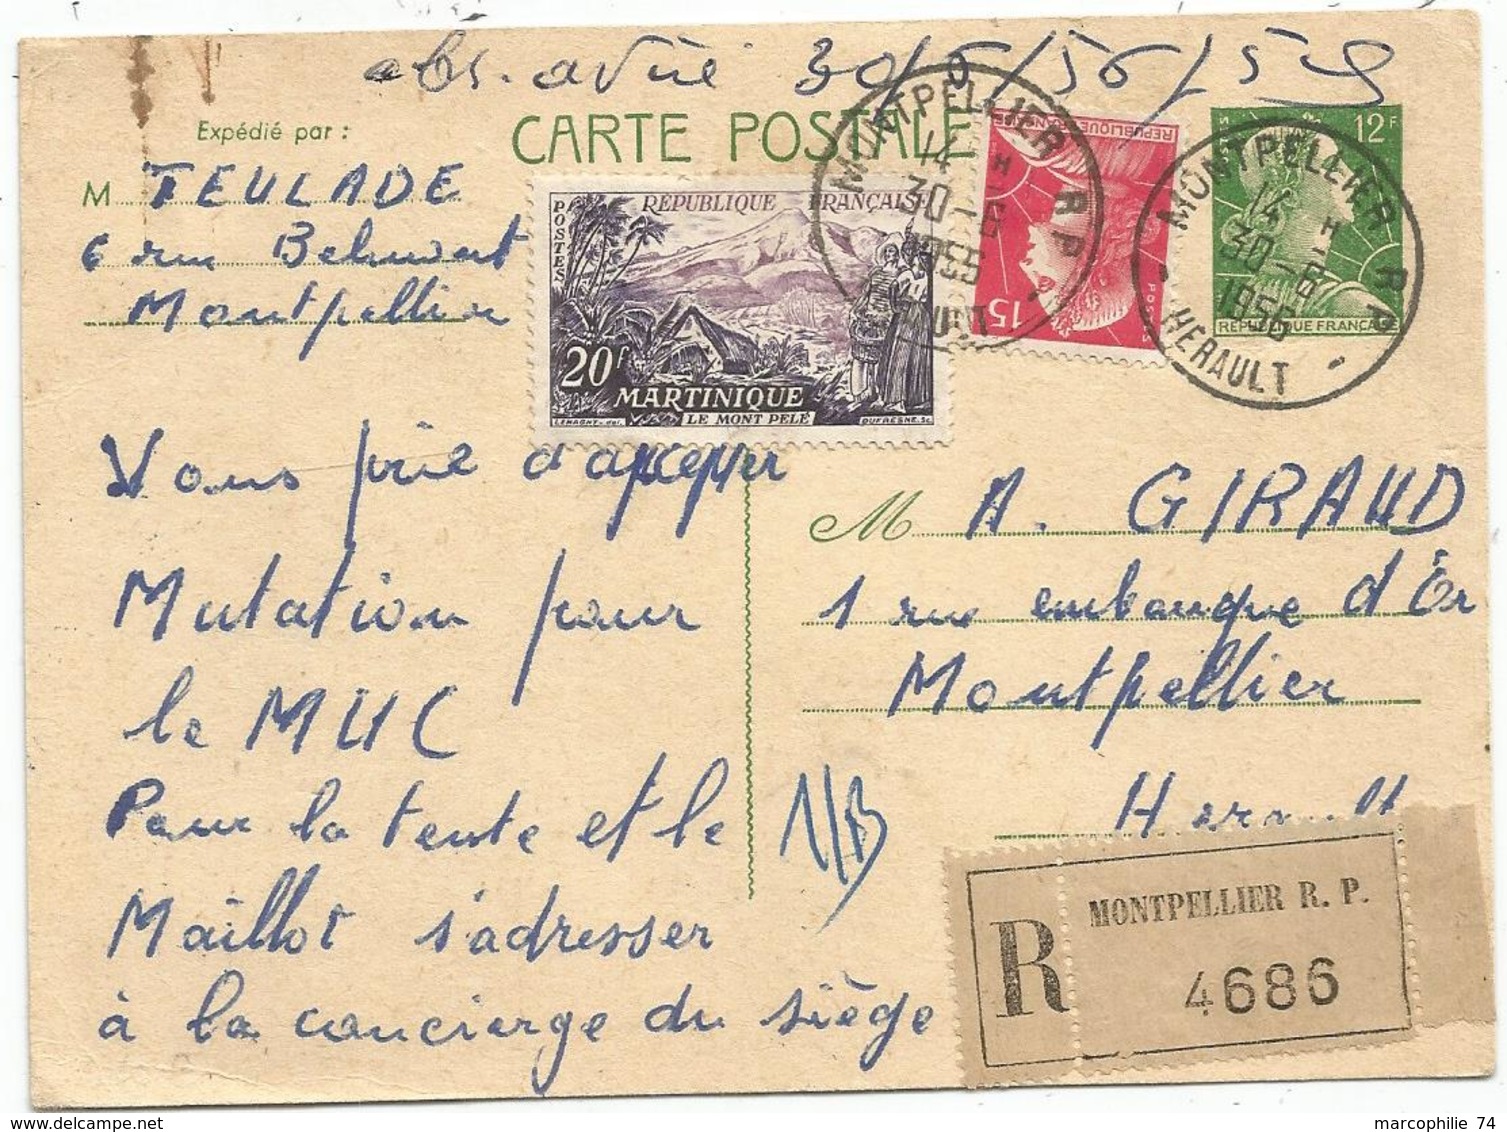 abs. avisé 30/6/56
Expédié par :
CARTE POSTALE
M TEULADE
6 rue
Montpellier
POSTES
REPUBLIQUE FRANÇAISE
20F
MARTINIQUE
LE MONT PELÉ
LEMAGNY-del.
DUFRESNE.Sc.
MONTPELLIER R.P.
14 H
30-6
1956
HERAULT
REPUBLIQUE FRANÇAISE
15F
POSTES
MONTPELLIER R.P.
14 H
30-6
1956
HERAULT
12F
REPUBLIQUE FRANÇAISE
Vous prie d'accepter
Mutation pour
le MUC
Pour la tente et le
Maillot s'adresser
à la concierge du siège
M A. GIRAUD
1 rue embouque d'Or
Montpellier
Herault
R
MONTPELLIER R. P.
4686
marcophilie 74